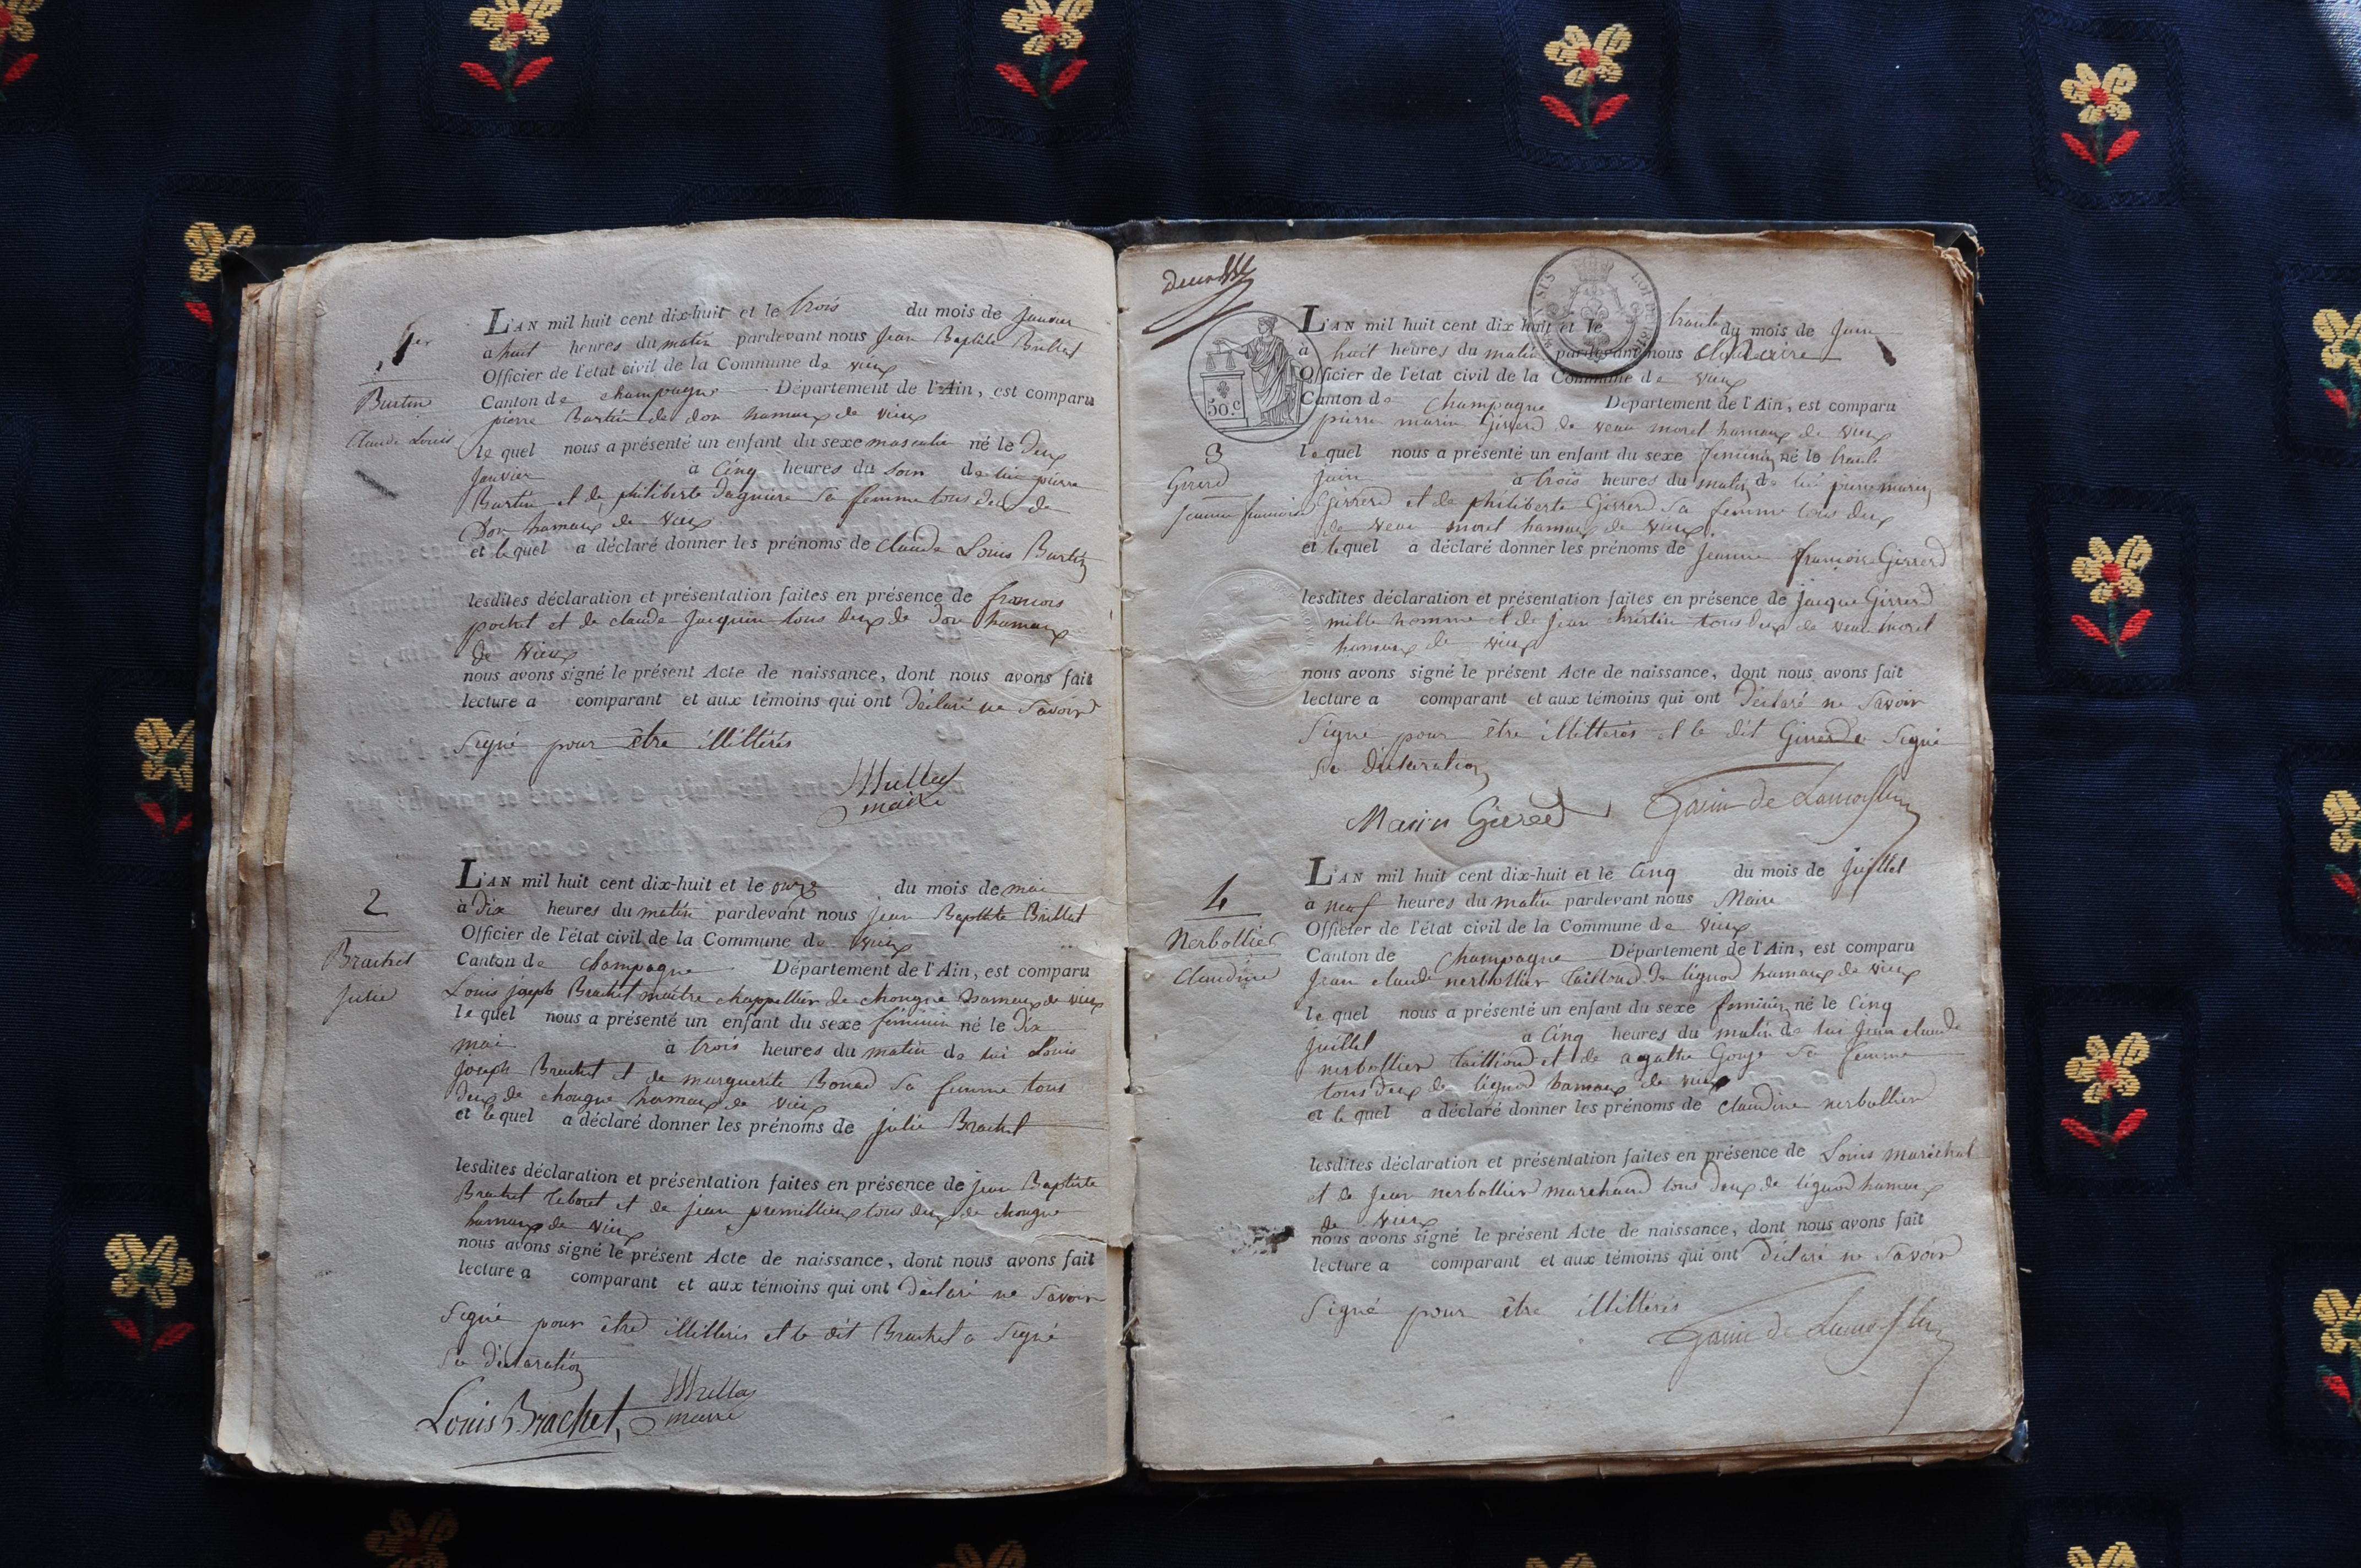 1er
Burtin
Claude Louis
L'AN mil huit cent dix-huit et le trois du mois de janvier
a huit heures du matin pardevant nous jean Baptiste Brillat
Officier de l'état civil de la Commune de vieux
Canton de champagne Département de l'Ain, est comparu
pierre Burtin de don hamaux de vieux
le quel nous a présenté un enfant du sexe masculin né le deux
janvier à Cinq heures du soir de lui pierre
Burtin et de philiberte daguiere sa femme tous deux de
Don hamaux de vieux
et le quel a déclaré donner les prénoms de claude Louis Burtin
lesdites déclaration et présentation faites en présence de francois
pochet et de claude Jacquin tous deux de don hamaux
de vieux
nous avons signé le présent Acte de naissance, dont nous avons fait
lecture a comparant et aux témoins qui ont déclaré ne Savoir
Signé pour être illittérés
maire
2
Brachet
Julie
L'AN mil huit cent dix-huit et le onze du mois de mai
à dix heures du matin pardevant nous jean Baptiste Brillat
Officier de l'état civil de la Commune de vieux
Canton de champagne Département de l'Ain, est comparu
Louis joseph Brachet maitre chappellier de chongne hamaux de vieux
le quel nous a présenté un enfant du sexe féminin né le dix
mai à trois heures du matin de lui Louis
joseph Brachet et de marguerite Bonad sa femme tous
deux de chongne hamaux de vieux
et le quel a déclaré donner les prénoms de julie Brachet
lesdites déclaration et présentation faites en présence de jean Baptiste
Brachet et de jean premillieux tous deux de chongne
hamaux de vieux
nous avons signé le présent Acte de naissance, dont nous avons fait
lecture a comparant et aux témoins qui ont déclaré ne Savoir
Signé pour être illitteris et le dit Brachet a Signé
Sa déclaration
Louis Brachet
maire
50.c
3
Girerd
jeanne francoise
L'AN mil huit cent dix huit et le trante du mois de juin
à huit heures du matin pardevant nous Maire
Officier de l'état civil de la Commune de vieux
Canton de Champagne Département de l'Ain, est comparu
pierre marin Girerd de veau moret hamaux de vieux
le quel nous a présenté un enfant du sexe feminin né le trante
juin à trois heures du matin de lui pierre marin
Girrerd et de philiberte Girrerd sa femme tous deux
de veau moret hamaux de vieux
et le quel a déclaré donner les prénoms de jeanne françoise Girrerd
lesdites déclaration et présentation faites en présence de jacque Girrerd
mille homme et de jean tous deux de veau moret
hamaux de vieux
nous avons signé le présent Acte de naissance, dont nous avons fait
lecture a comparant et aux témoins qui ont déclaré ne Savoir
Signé pour être illitterés et le dit Girerd a Signé
Sa déclaration
Marin Girerd
4
Nerbollier
Claudine
L'AN mil huit cent dix-huit et le Cinq du mois de juillet
a neuf heures du matin pardevant nous Maire
Officier de l'état civil de la Commune de vieux
Canton de Champagne Département de l'Ain, est comparu
jean claude nerbollier de lignod hamaux de vieux
le quel nous a présenté un enfant du sexe feminin né le Cinq
juillet a Cinq heures du matin de lui jean claude
nerbollier et de agathe Gouje sa femme
tous deux de lignod hamaux de vieux
et le quel a déclaré donner les prénoms de claudine nerbollier
lesdites déclaration et présentation faites en présence de Louis maréchal
et de jean nerbollier marchand tous deux de lignod hamaux
de vieux
nous avons signé le présent Acte de naissance, dont nous avons fait
lecture a comparant et aux témoins qui ont déclaré ne Savoir
Signé pour être illittérés